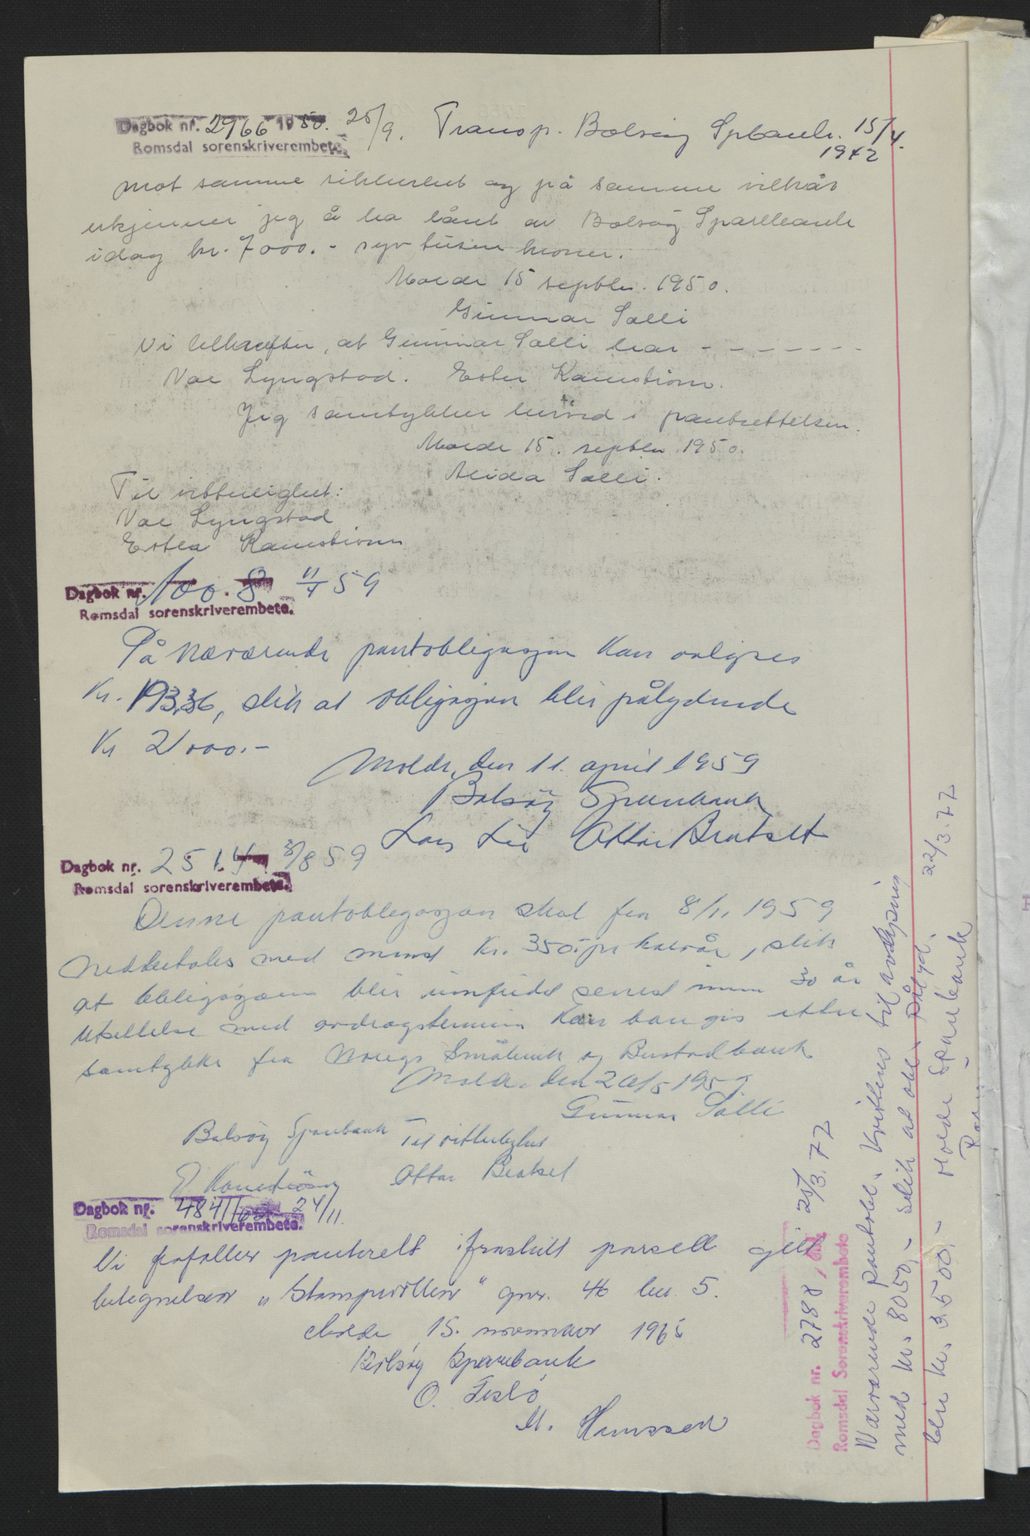 Dagbok nr. 2966 1950. 25/9. Transp. Bolsøy Spbank. 15/4.
Romsdal sorenskriverembete. 1942
Mot samme sikkerhet og på samme vilkår
erkjenner jeg å ha lånt av Bolsøy Sparebank
idag kr. 7000.- syv tusen kroner.
Molde 15 septbr. 1950.
Gunnar Salli
Vi bekrefter, at Gunnar Salli har - - - - - - -
Val Lyngstad. Ester Kanestrøm.
Jeg samtykker herved i pantsettelsen.
Molde 15. septbr. 1950.
Alida Salli.
Til vitterlighet:
Val Lyngstad
Ester Kanestrøm
Dagbok nr. 100. 8 11/4 59
Romsdal sorenskriverembete.
På nærværende pantobligasjon kan avlyses
Kr. , slik at obligasjon blir pålydende
Kr 21000.-
Molde, den 11. april 1959
Bolsøy Sparebank
Lars Lie Ottar Bratset
Dagbok nr. 2514 3/8 59
Romsdal sorenskriverembete.
Denne pantobligasjon skal fra 8/11 1959
nedbetales med minst Kr. 350.- pr halvår, slik
at obligasjonen blir innfridd senest innen 30 år
Utsettelse med avdragstermin kan bare gis etter
samtykke fra Noregs Småbruk og Bustadbank
Molde, den 20/5 1959.
Gunnar Salli
Bolsøy Sparebank Til vitterlighet
E Kanestrøm Ottar Bratset
Dagbok nr. 4841/65 24/11
Romsdal sorenskriverembete.
Vi frafaller panterett i fraskilt parsell gitt
betegnelsen „ “ gnr. 46 bnr. 5.
Molde 15. november 1965
Bolsøy Sparebank
O.
M. Hanssen
Dagbok nr. 2788, 25/3.72
Romsdal Sorenskriverembete
Nærværende pantobl. kvitteres til avlysning
med kr. 8050,- slik at obl. pålyd.
blir kr. 3500.- Molde Sparebank 22/3.72